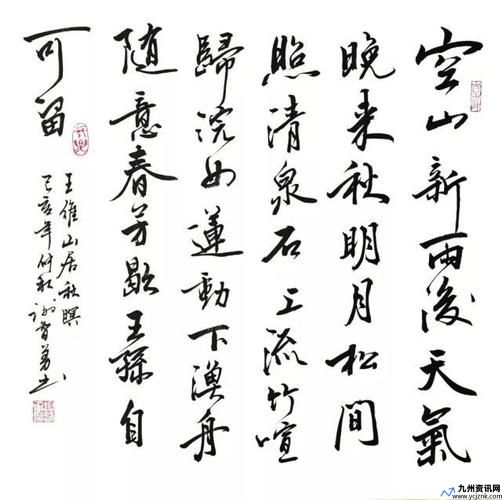 空山新雨後天氣
晚来秋明月松間
照清泉石上流竹喧
歸浣女蓮動下漁舟
随意春芳歇王孫自
可留
王維山居秋暝
己亥年仲秋
九州资讯网
www.ycjznk.com